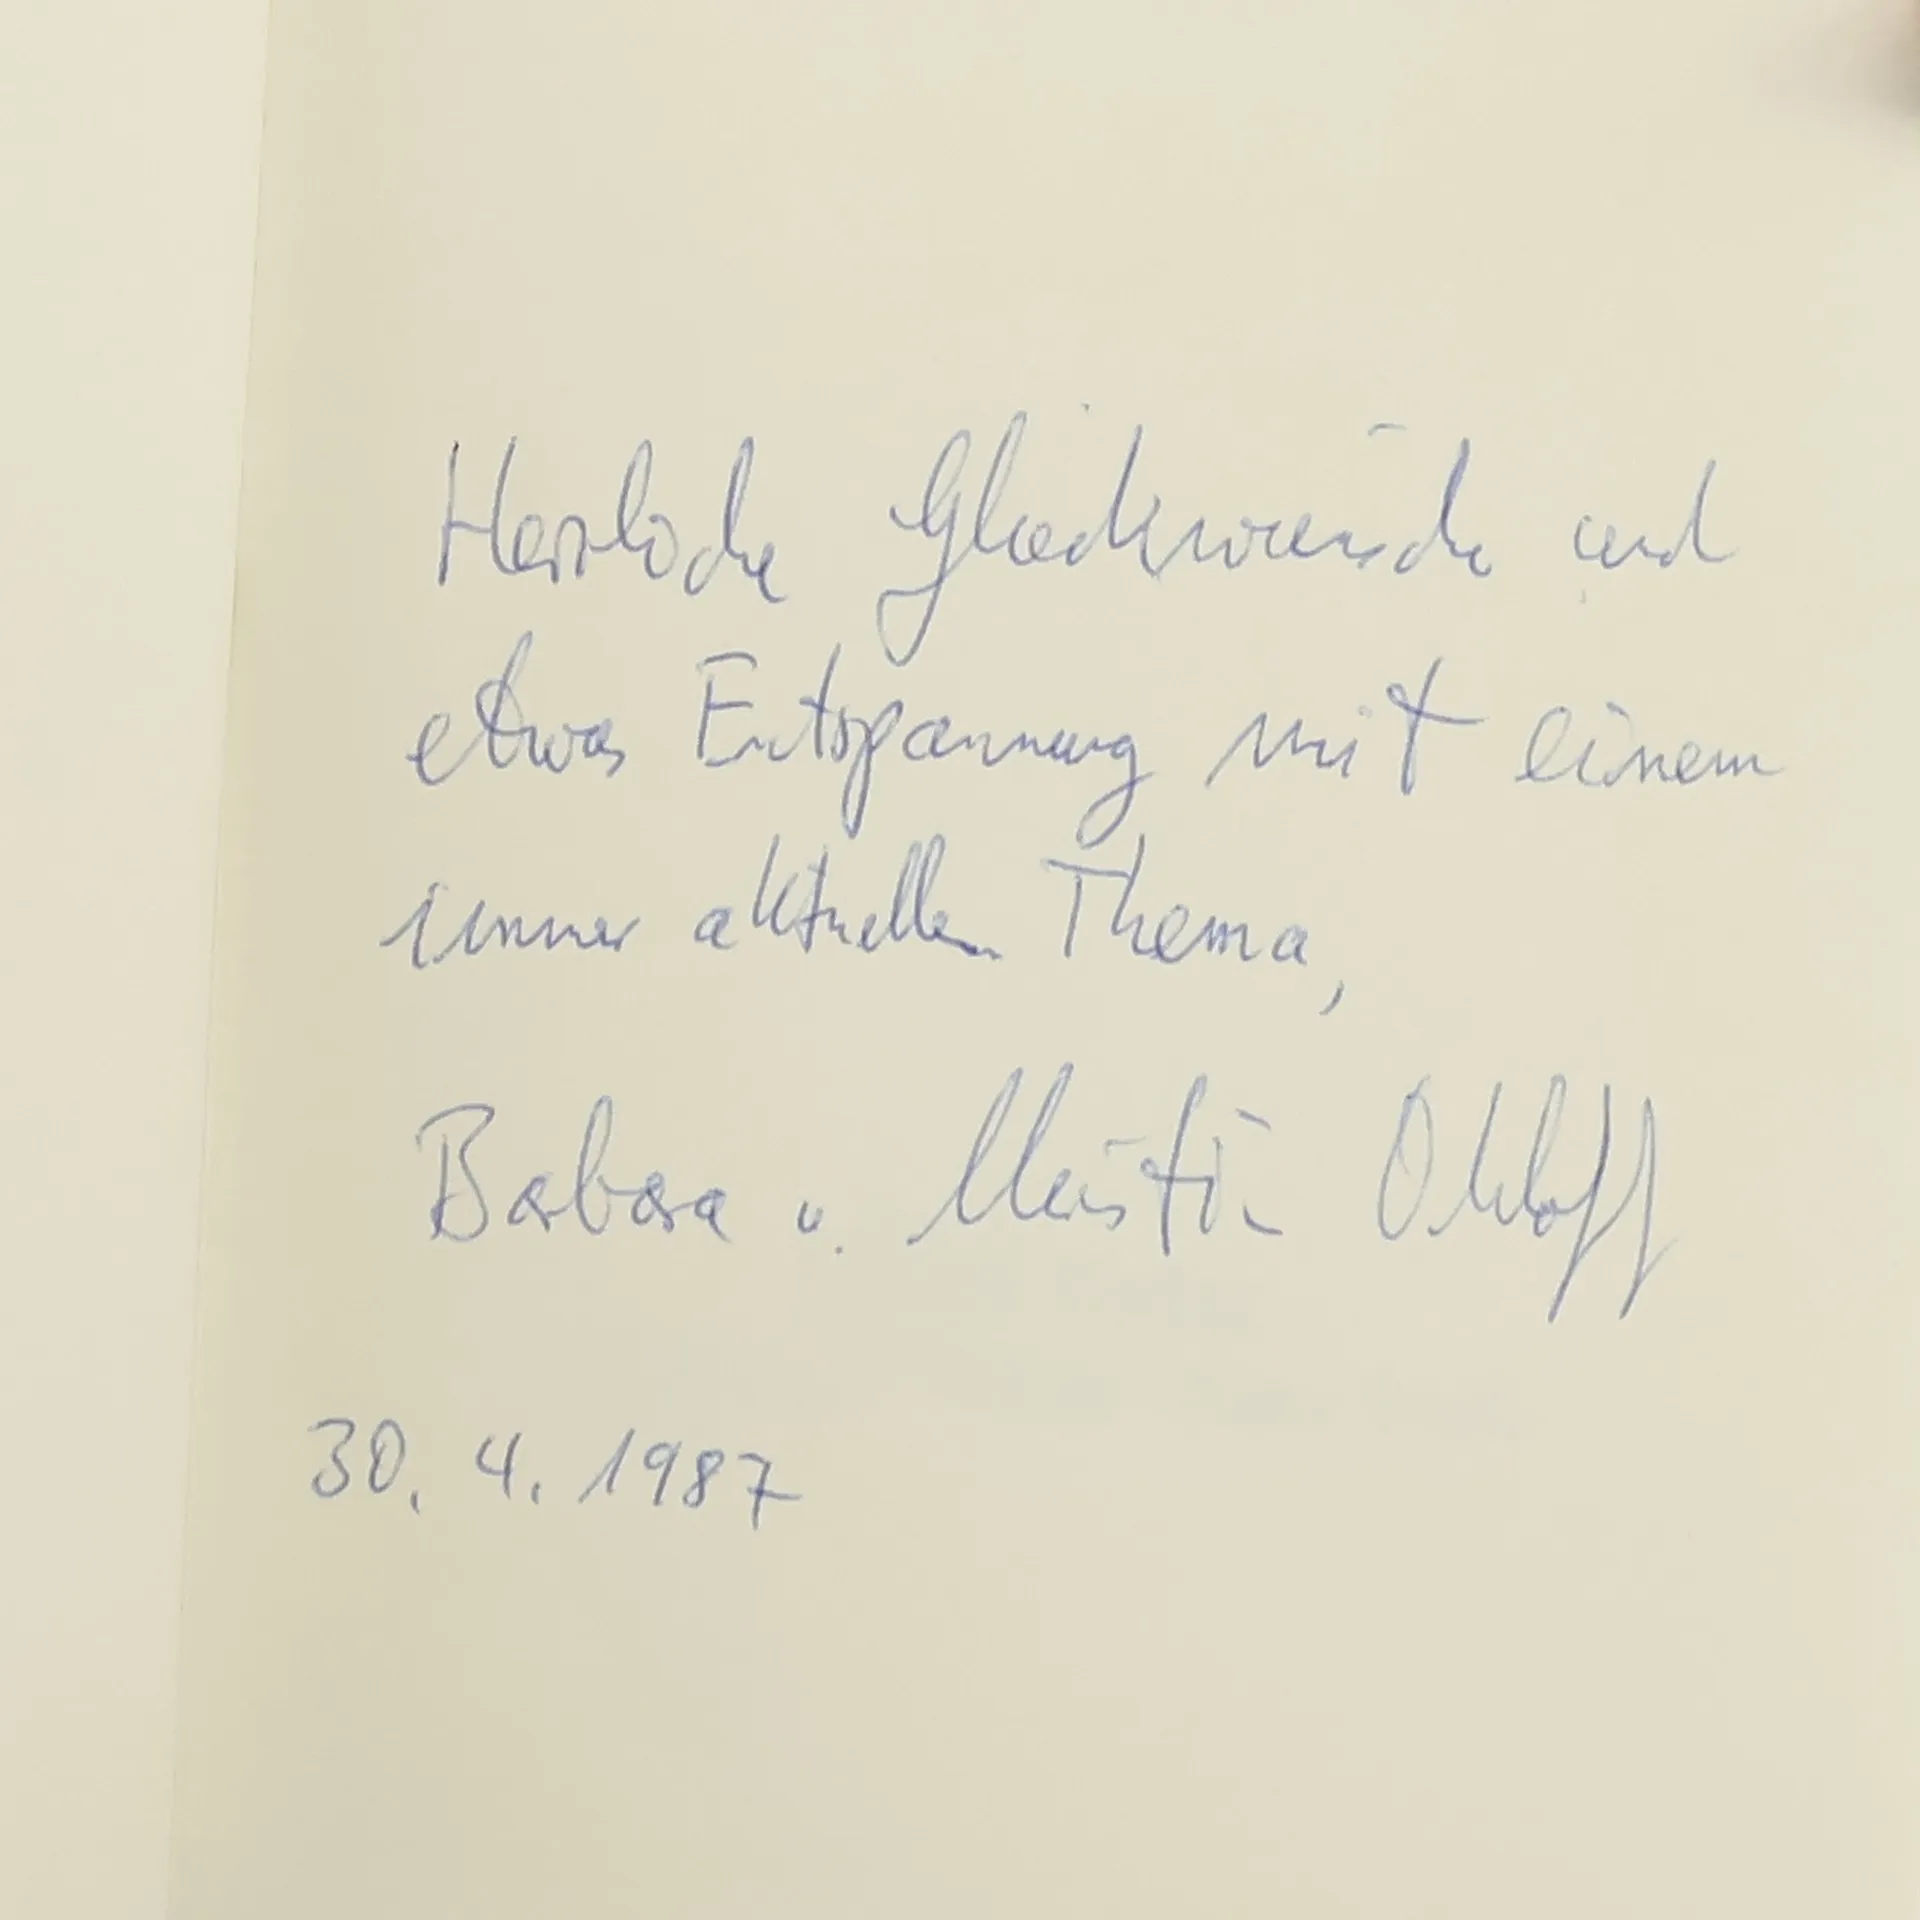 Herzliche Glückwünsche und
etwas Entspannung mit einem
immer aktuellen Thema,
Barbara u. Martin Ohloff
30. 4. 1987